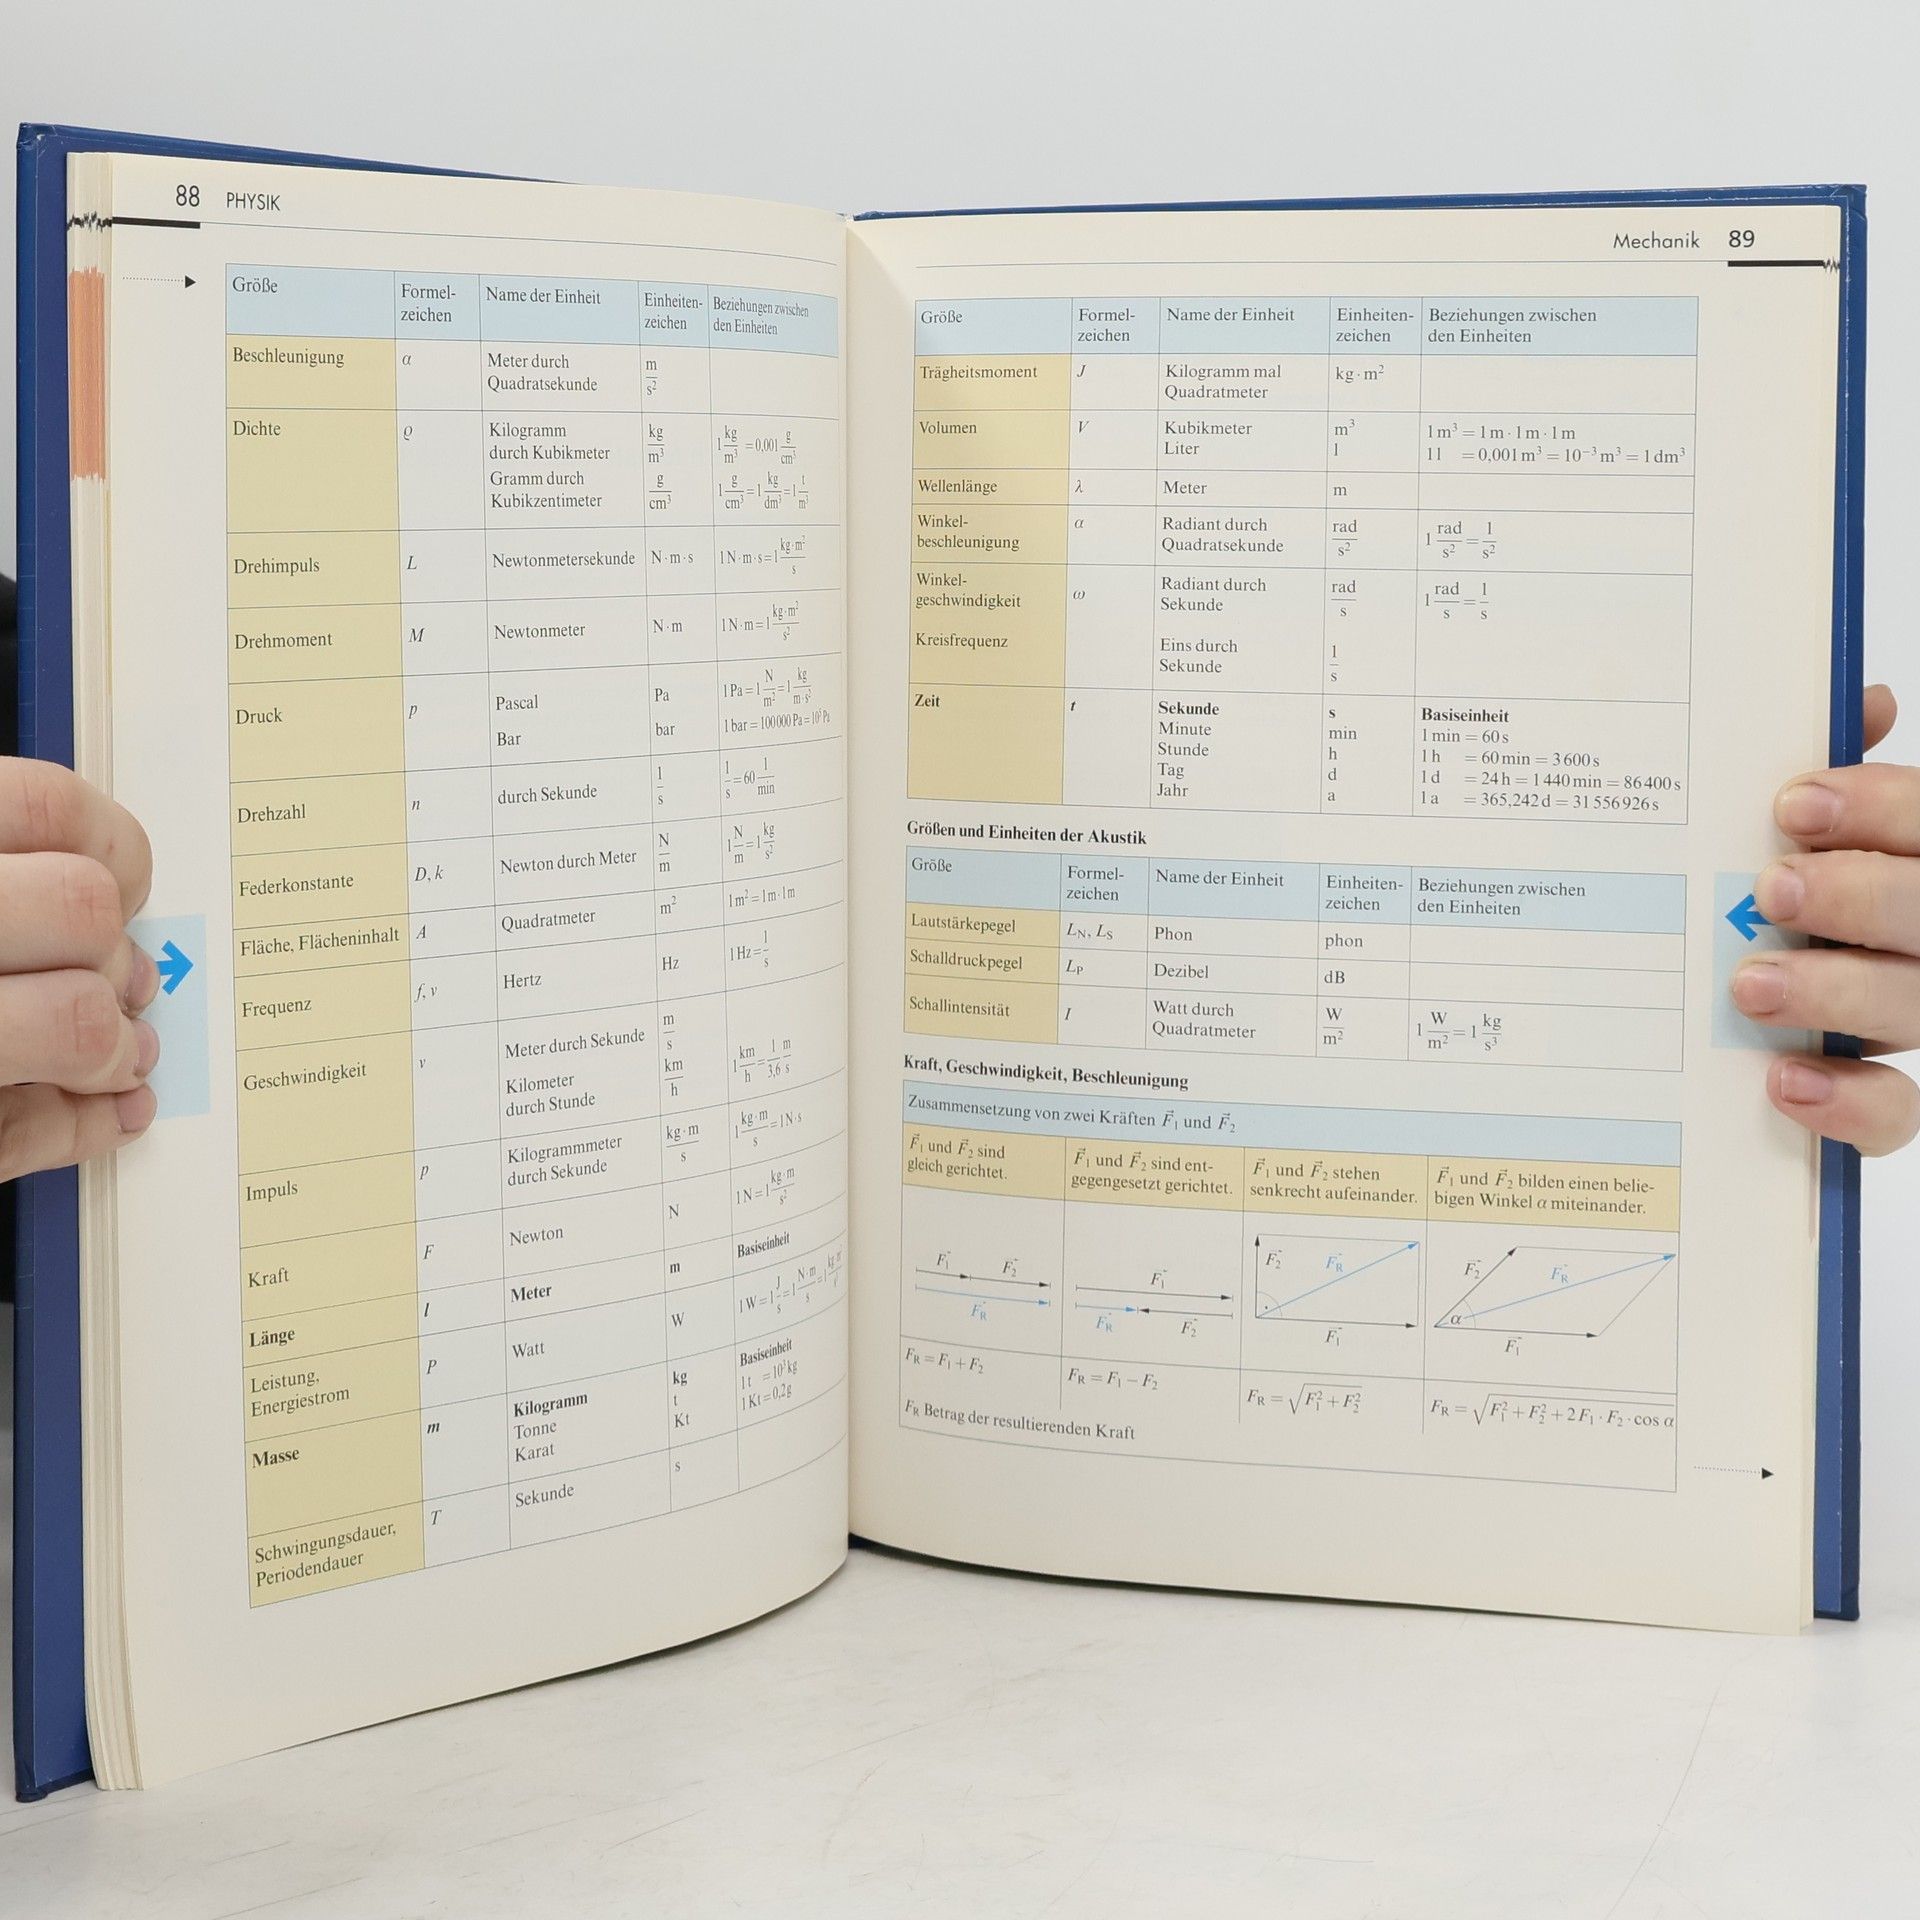 88 PHYSIK
Größe Formel-zeichen Name der Einheit Einheiten-zeichen Beziehungen zwischen den Einheiten
Beschleunigung α Meter durch Quadratsekunde m/s²
Dichte ϱ Kilogramm durch Kubikmeter kg/m³ 1 kg/m³ = 0,001 g/cm³
Gramm durch Kubikzentimeter g/cm³ 1 g/cm³ = 1 kg/dm³ = 1 t/m³
Drehimpuls L Newtonmetersekunde N·m·s 1 N·m·s = 1 kg·m²/s
Drehmoment M Newtonmeter N·m 1 N·m = 1 kg·m²/s²
Druck p Pascal Pa 1 Pa = 1 N/m² = 1 kg/m·s²
Bar bar 1 bar = 100 000 Pa = 10⁵ Pa
Drehzahl n durch Sekunde 1/s 1/s = 60 1/min
Federkonstante D, k Newton durch Meter N/m 1 N/m = 1 kg/s²
Fläche, Flächeninhalt A Quadratmeter m² 1 m² = 1 m·1 m
Frequenz f, ν Hertz Hz 1 Hz = 1/s
Geschwindigkeit v Meter durch Sekunde m/s
Kilometer durch Stunde km/h 1 km/h = 1/3,6 m/s
Impuls p Kilogrammmeter durch Sekunde kg·m/s 1 kg·m/s = 1 N·s
Kraft F Newton N 1 N = 1 kg·m/s²
Länge l Meter m Basiseinheit
Leistung, Energiestrom P Watt W 1 W = 1 J/s = 1 N·m/s = 1 kg·m²/s³
Masse m Kilogramm kg Basiseinheit
Tonne t 1 t = 10³ kg
Karat Kt 1 Kt = 0,2 g
Schwingungsdauer, Periodendauer T Sekunde s
Mechanik 89
Größe Formel-zeichen Name der Einheit Einheiten-zeichen Beziehungen zwischen den Einheiten
Trägheitsmoment J Kilogramm mal Quadratmeter kg·m²
Volumen V Kubikmeter m³ 1 m³ = 1 m · 1 m · 1 m
Liter l 1 l = 0,001 m³ = 10⁻³ m³ = 1 dm³
Wellenlänge λ Meter m
Winkel-beschleunigung α Radiant durch Quadratsekunde rad/s² 1 rad/s² = 1/s²
Winkel-geschwindigkeit ω Radiant durch Sekunde rad/s 1 rad/s = 1/s
Kreisfrequenz Eins durch Sekunde 1/s
Zeit t Sekunde s Basiseinheit
Minute min 1 min = 60 s
Stunde h 1 h = 60 min = 3 600 s
Tag d 1 d = 24 h = 1 440 min = 86 400 s
Jahr a 1 a = 365,242 d = 31 556 926 s
Größen und Einheiten der Akustik
Größe Formel-zeichen Name der Einheit Einheiten-zeichen Beziehungen zwischen den Einheiten
Lautstärkepegel L_N, L_S Phon phon
Schalldruckpegel L_P Dezibel dB
Schallintensität I Watt durch Quadratmeter W/m² 1 W/m² = 1 kg/s³
Kraft, Geschwindigkeit, Beschleunigung
Zusammensetzung von zwei Kräften F⃗₁ und F⃗₂
F⃗₁ und F⃗₂ sind gleich gerichtet.
F⃗₁ und F⃗₂ sind ent-gegengesetzt gerichtet.
F⃗₁ und F⃗₂ stehen senkrecht aufeinander.
F⃗₁ und F⃗₂ bilden einen belie-bigen Winkel α miteinander.
F⃗₁ F⃗₂ F⃗_R
F⃗₁ F⃗_R F⃗₂
F⃗₂ F⃗_R F⃗₁
F⃗₂ F⃗_R α F⃗₁
F_R = F₁ + F₂
F_R = F₁ − F₂
F_R = √(F₁² + F₂²)
F_R = √(F₁² + F₂² + 2 F₁ · F₂ · cos α)
F_R Betrag der resultierenden Kraft